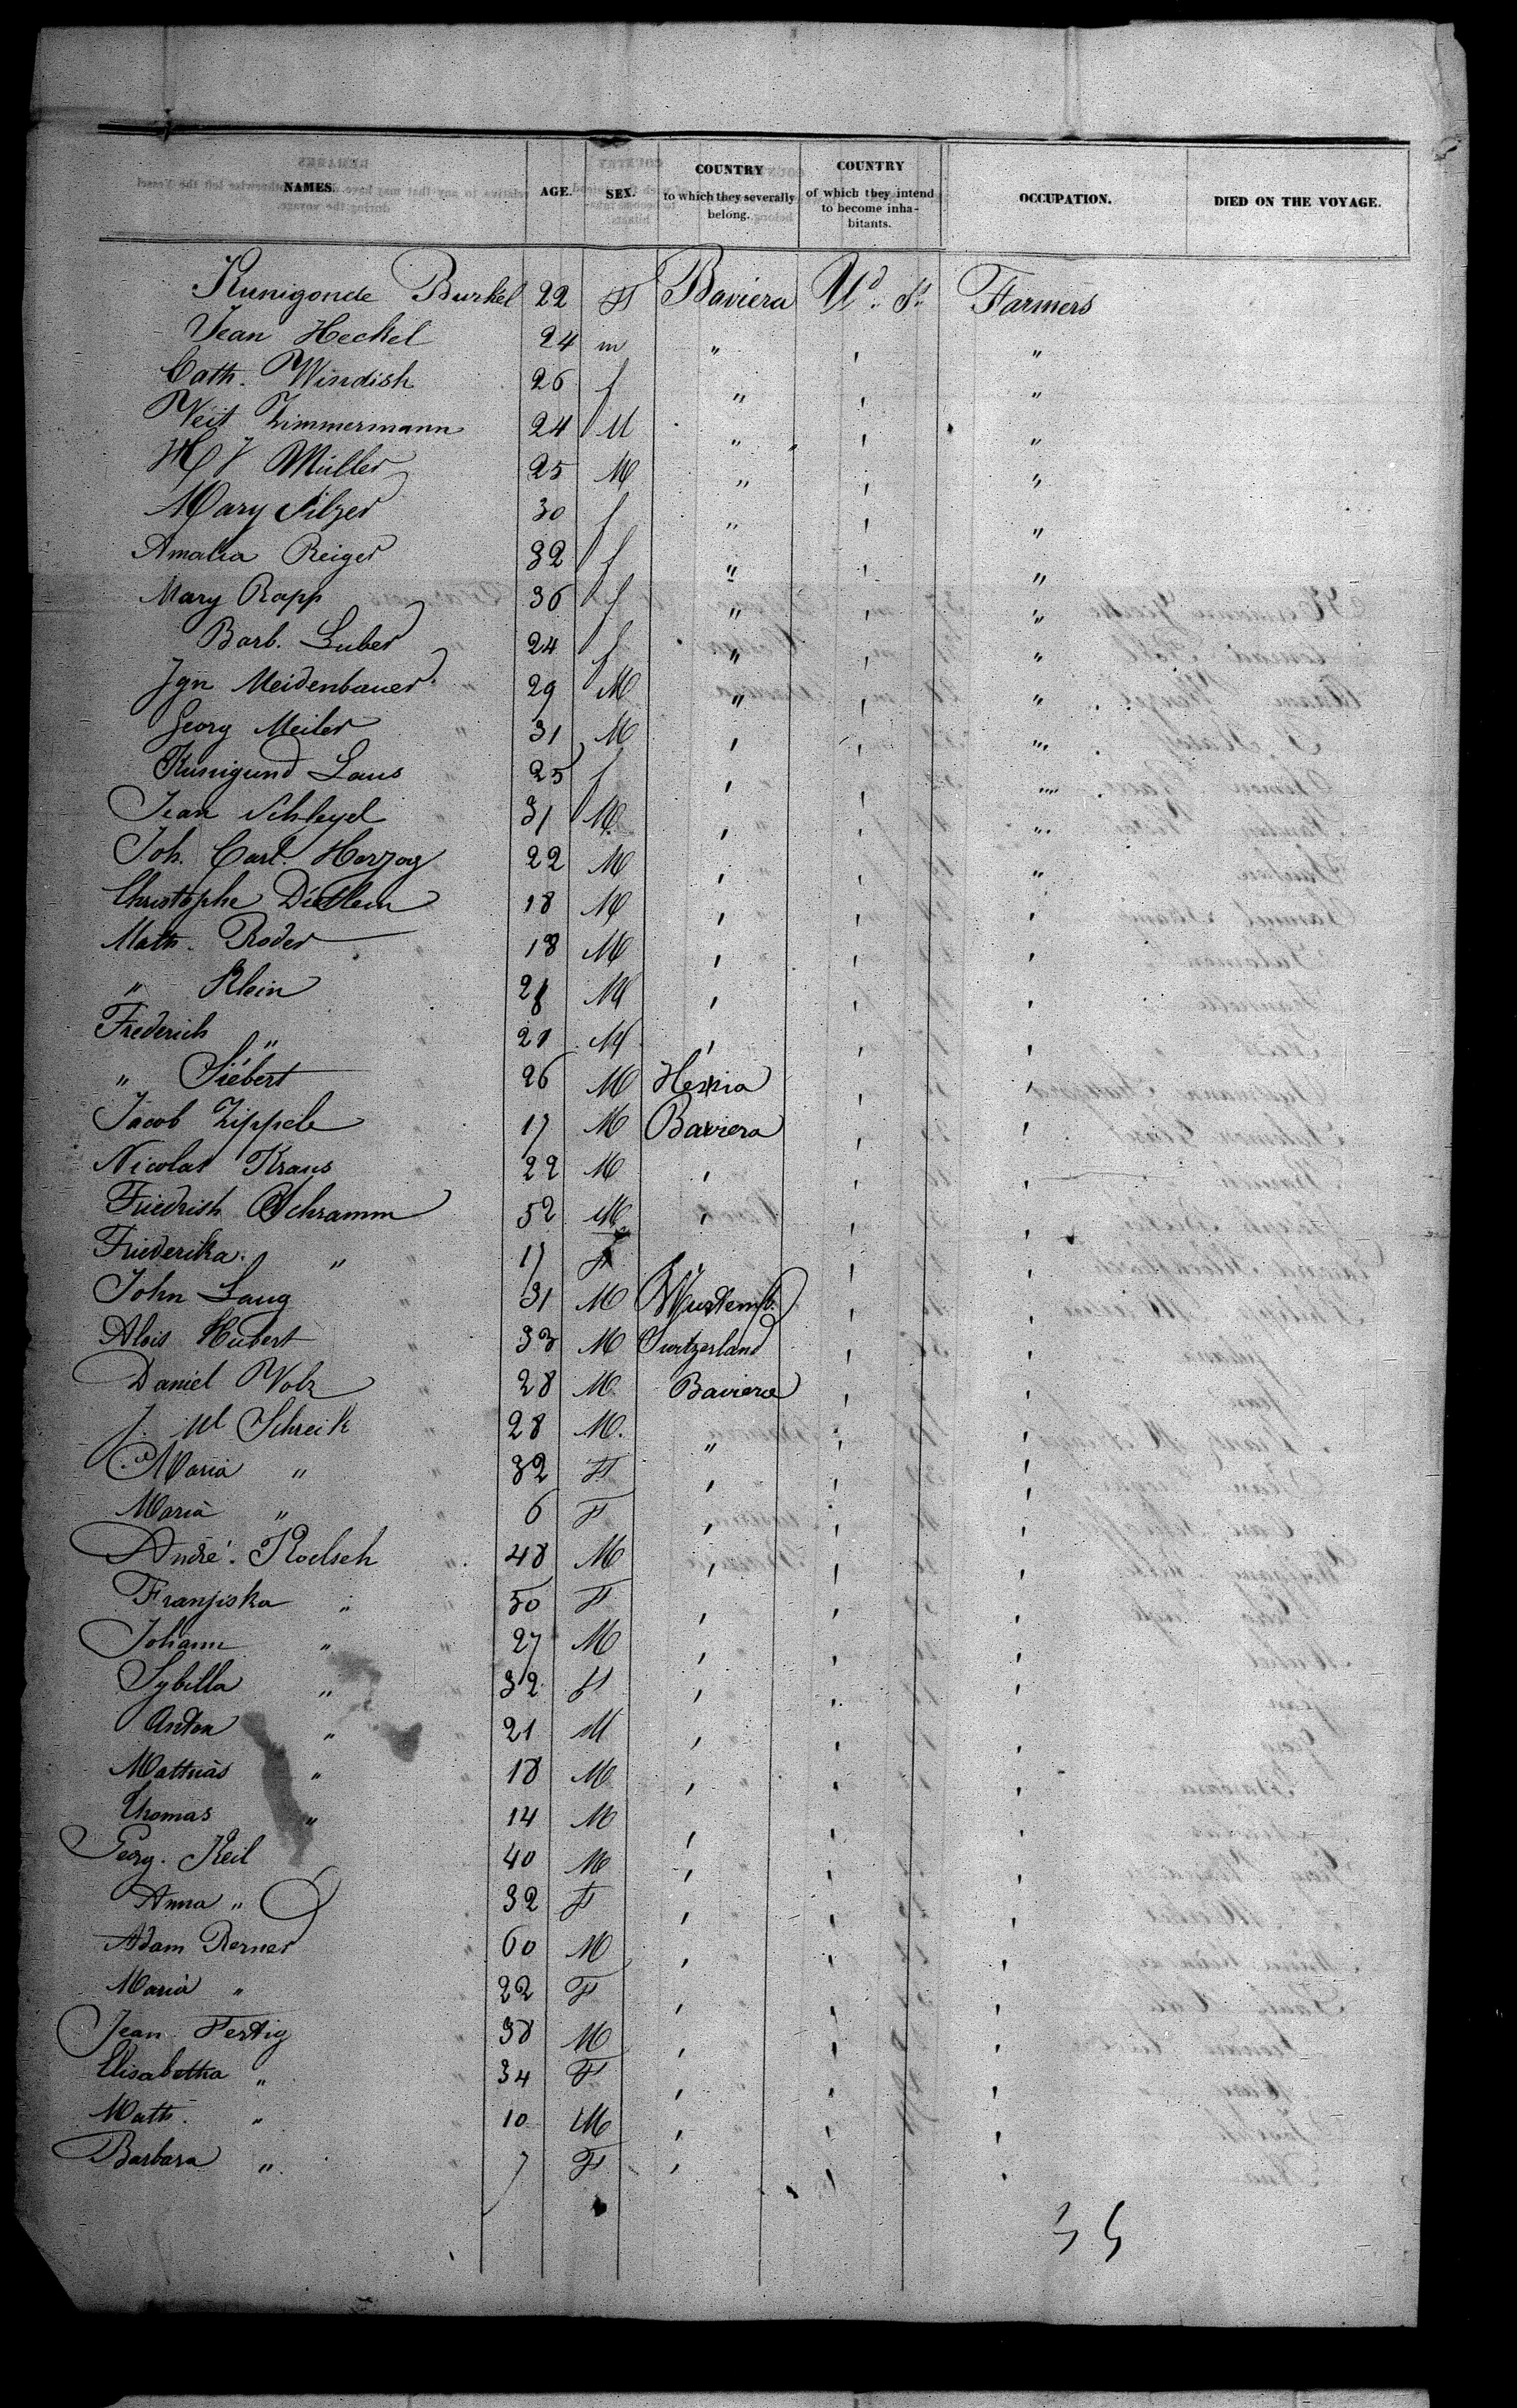 NAMES. AGE. SEX. COUNTRY to which they severally belong. COUNTRY of which they intend to become inhabitants. OCCUPATION. DIED ON THE VOYAGE.
Kunigonde Burkel 22 F Baviera Ud. St. Farmers
Jean Heckel 24 m " , "
Cath. Windish 26 f " , "
Veit Zimmermann 24 M " , "
Müller 25 M " , "
Mary Silzer 30 f " , "
Amalia Reiger 32 f " , "
Mary Rapp 36 f " , "
Barb. Luber 24 f " , "
Jgn Meidenbauer 29 M " , "
Georg Meiler 31 M , , "
Kunigund Laus 25 f , , "
Jean Schlegel 31 M. , , "
Joh. Carl. Herzog 22 M , , "
Christophe Dietlein 18 M , , ,
Math. Roder 18 M , , ,
" Klein M , , ,
Frederich " 21 M , , ,
" Siebert 26 M Hessia , ,
Jacob Zippele 17 M Baviera , ,
Nicolas Kraus 22 M , , ,
Friedrish Schramm 52 M , , ,
Friederika. " 17 F , ,
John Lang 31 M Wurtemb. , ,
Alois Hubert 33 M Switzerland , ,
Daniel Volz 28 M Baviera , ,
J. Ml Schreik 28 M. " , ,
Maria " 32 F , , ,
Maria " 6 F , , ,
André. Roelsch 48 M , , ,
Franziska " 50 F , , ,
Johann " 27 M , , ,
Sybilla " 32 F , , ,
Anton " 21 M , , ,
Mathias " 18 M , , ,
Thomas " 14 M , , ,
Georg. Keil 40 M , , ,
Anna " 32 F , , ,
Adam Rerner 60 M , , ,
Maria " 22 F , , ,
Jean Fertig 38 M , , ,
Elisabetha " 34 F , , ,
Math. " 10 M , , ,
Barbara " 7 F , , ,